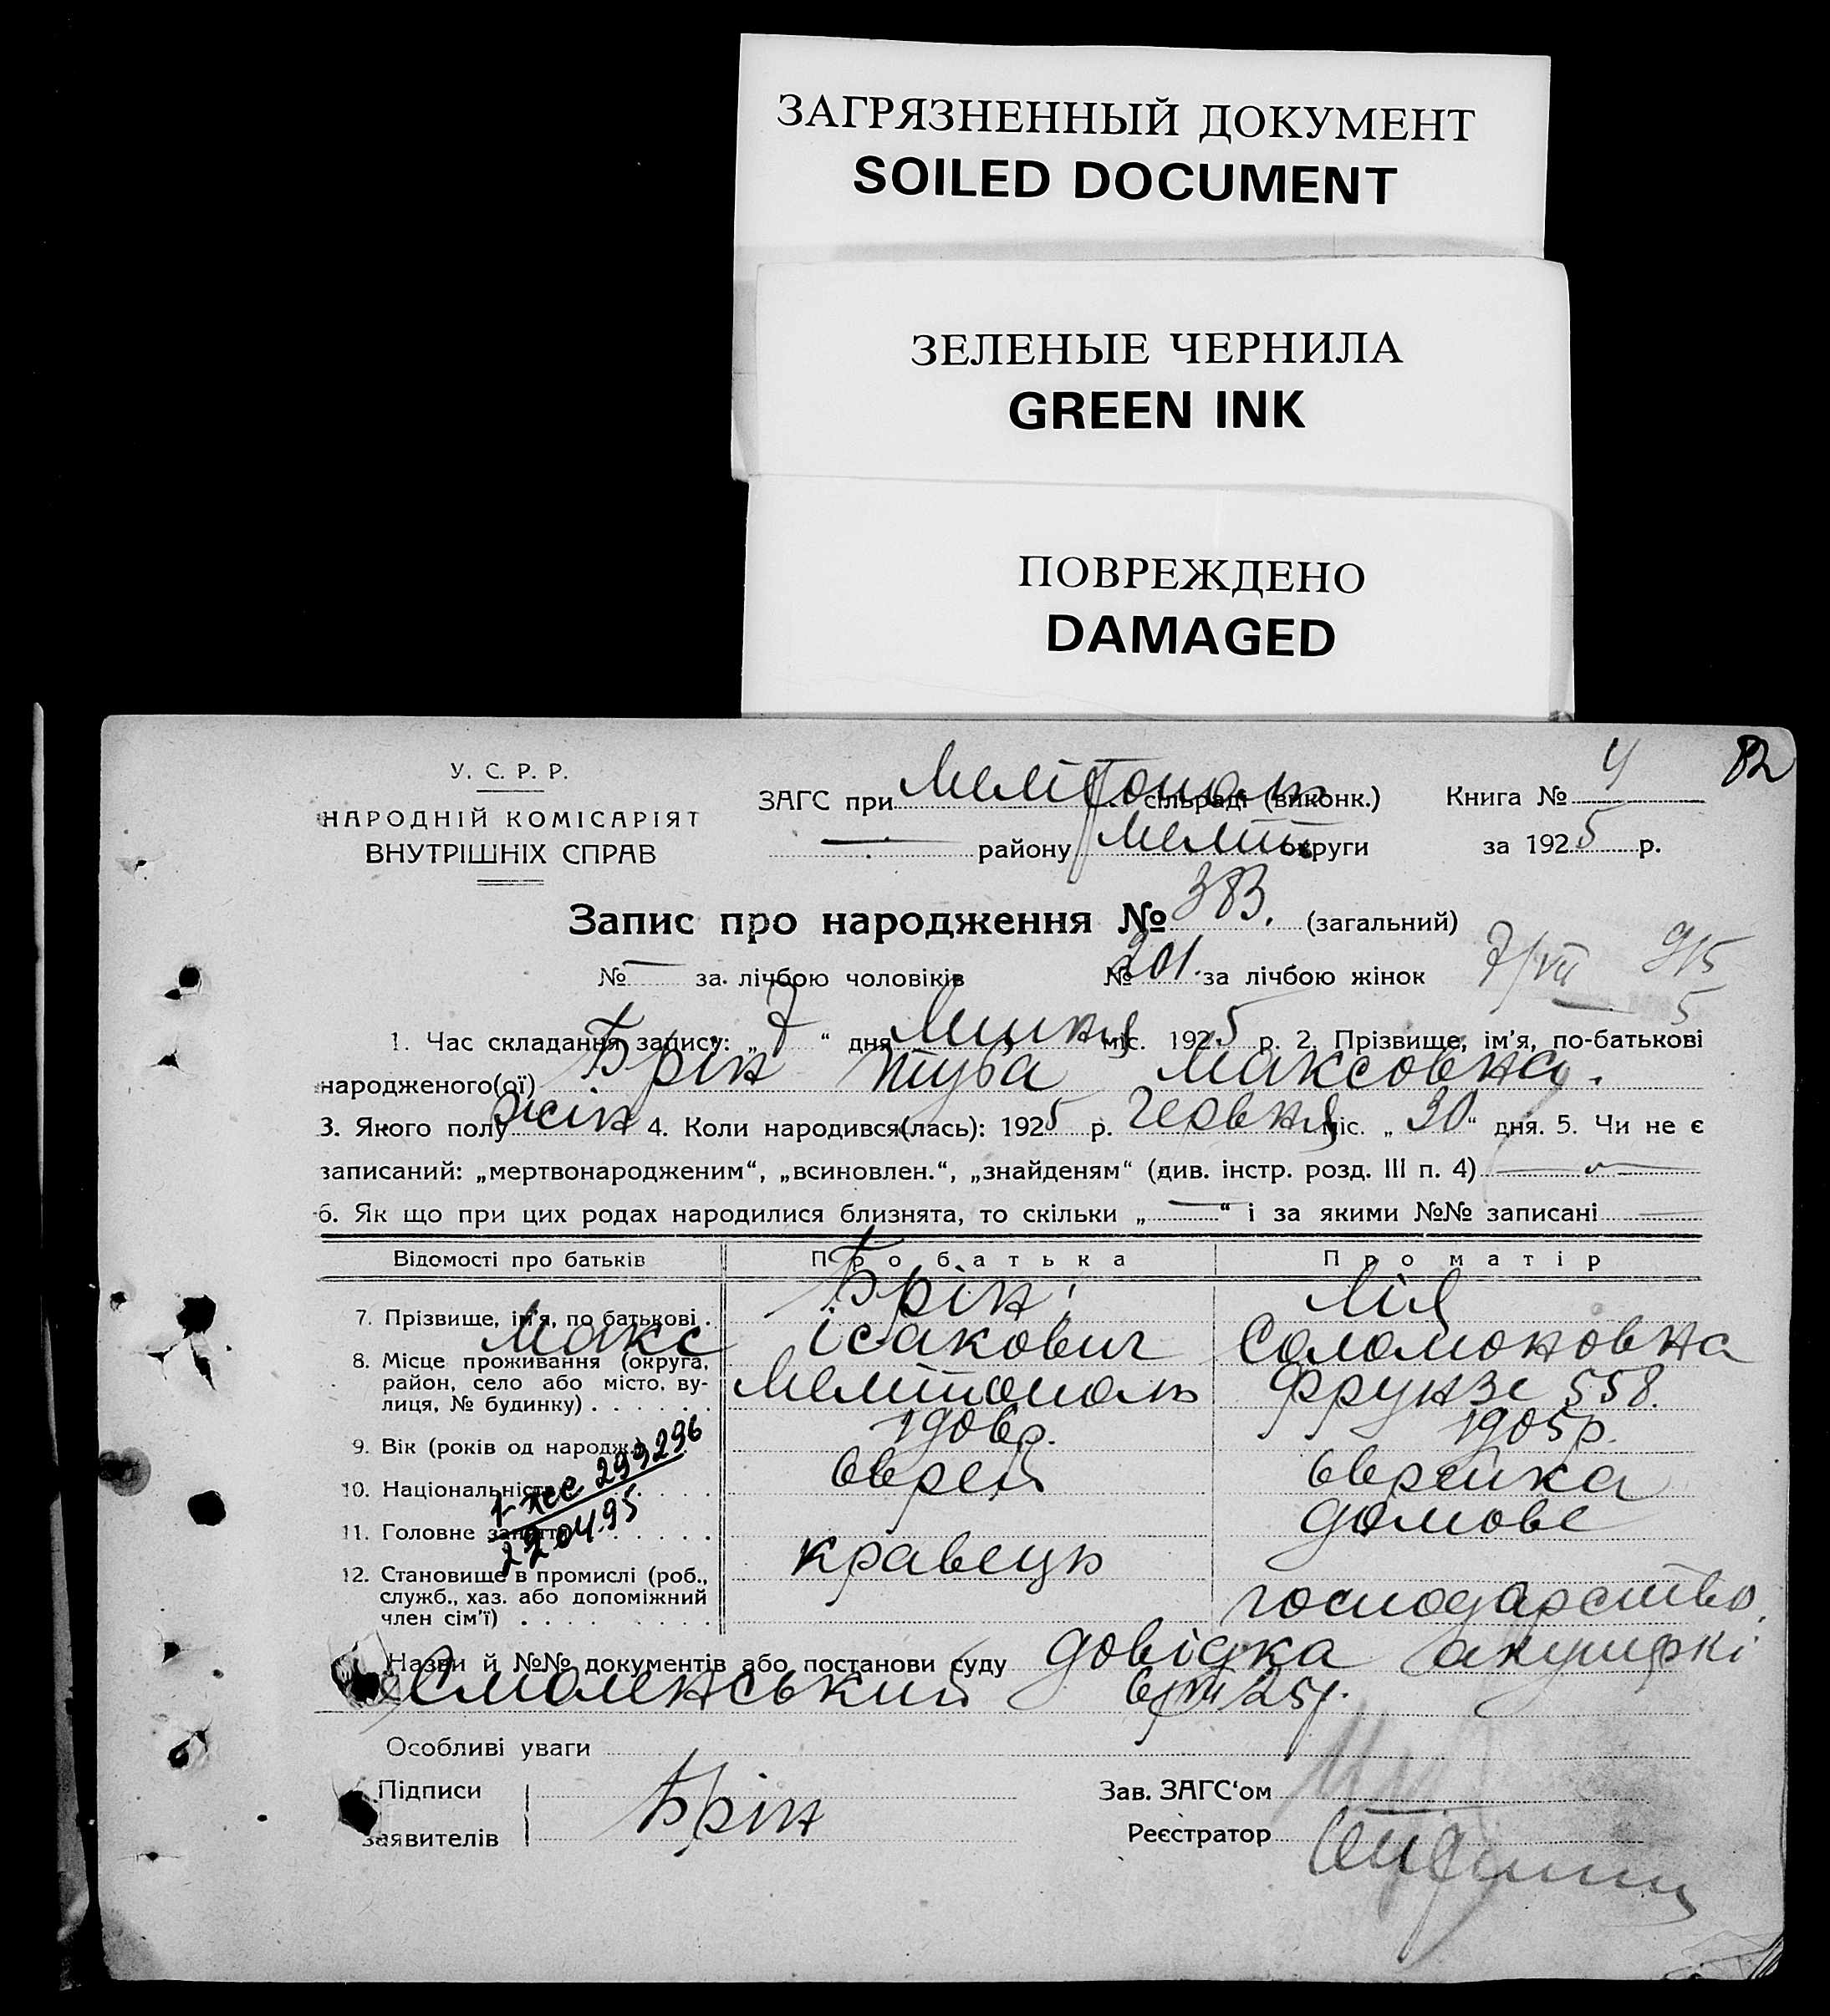 ЗАГРЯЗНЕННЫЙ ДОКУМЕНТ
SOILED DOCUMENT
ЗЕЛЕНЫЕ ЧЕРНИЛА
GREEN INK
ПОВРЕЖДЕНО
DAMAGED
82
У. С. Р. Р.
НАРОДНІЙ КОМІСАРІЯТ
ВНУТРІШНІХ СПРАВ
ЗАГС при Мелітополь сільраді (виконк.) Книга № 4
— району Меліт. округи за 1925 р.
Запис про народження № 383. (загальний)
№ — за лічбою чоловіків № 201. за лічбою жінок 7/VII
1. Час складання запису: „ 7 “ дня Липня міс. 1925 р. 2. Прізвище, ім'я, по-батькові
народженого(ої) Брін Туба Максовна.
3. Якого полу жін 4. Коли народився(лась): 1925 р. Червня міс. „ 30 “ дня. 5. Чи не є
записаний: „мертвонародженим“, „всиновлен.“, „знайденям“ (див. інстр. розд. III п. 4) —
6. Як що при цих родах народилися близнята, то скільки „ — “ і за якими №№ записані —
Відомості про батьків Про батька Про матір
7. Прізвище, ім'я, по батькові . Брін Лія
Макс Ісакович Соломоновна
8. Місце проживання (округа, район, село або місто, вулиця, № будинку) . . . . . . Мелітополь Фрунзе 558.
9. Вік (років од народж.) 1906р. 1905р.
299296
10. Національність . . . . Еврей Еврейка
220495
11. Головне заняття . . . . . домове
12. Становище в промислі (роб., служб., хаз. або допоміжний член сім'ї) . . . . . . . . кравець господарство.
Назви й №№ документів або постанови суду довідка акушеркі
Смоленський 6/VII 25р.
Особливі уваги
Підписи
заявителів Брін
Зав. ЗАГС'ом
Реєстратор